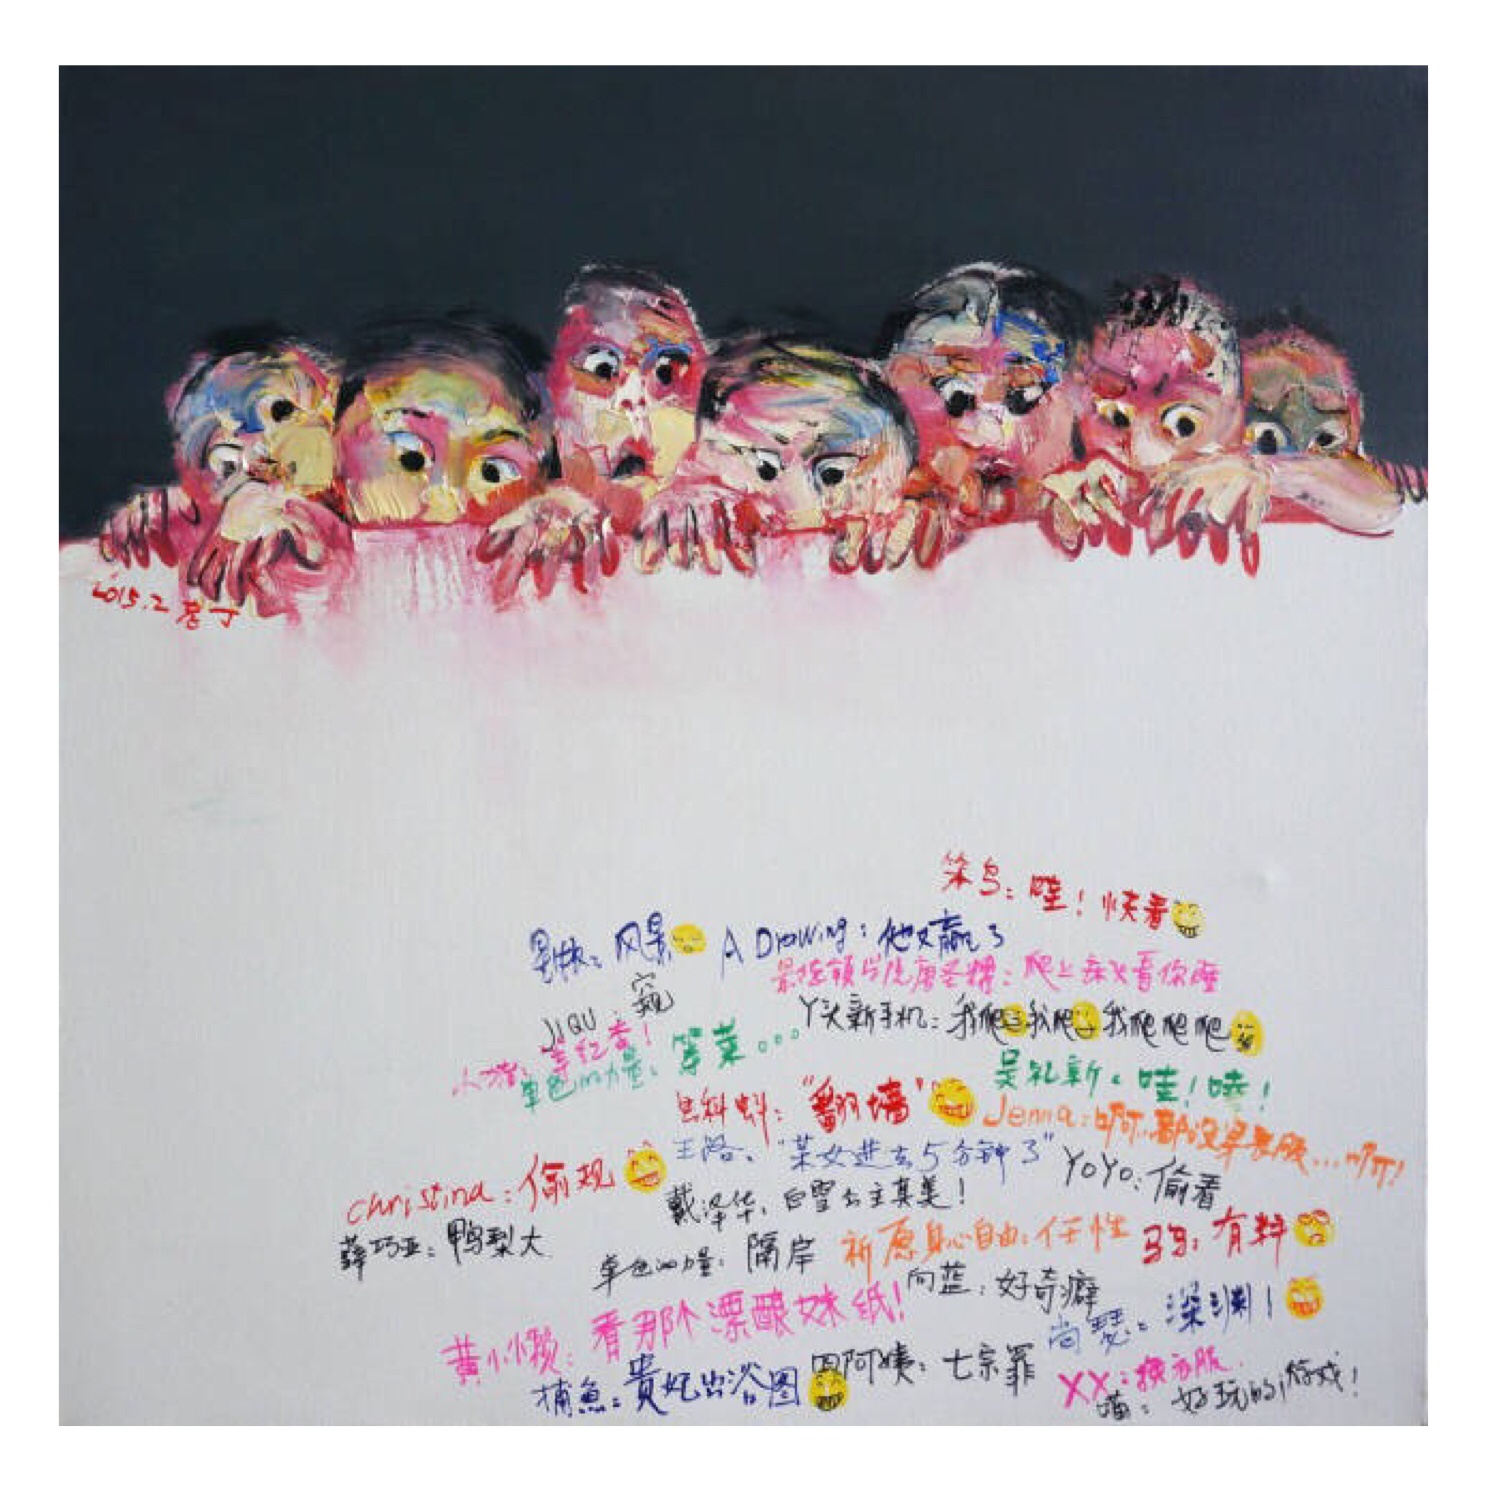 2015.2 老丁
笨鸟：哇！快看
风景
A Drawing：他又赢了
爬上来只看你
JIQU：窥
丫头新手机：我爬 我爬 我爬爬爬
小猪：等红杏！
单色的力量：等菜。。。
吴礼新：哇！哇！
"翻墙"
Jenna：啊..都没穿衣服...啊！
王洛："某女进去5分钟了"
YOYO：偷看
christina：偷窥
戴泽华：白雪公主真美！
薛巧亚：鸭梨大
单色的力量：隔岸
祈愿身心自由：任性
马马：有料
向蓝：好奇癖
黄小懒：看那个漂酿妹纸！
尚瑟：深渊！
捕魚：贵妃出浴图
四阿姨：七宗罪
XX：换衣服
喵：好玩的游戏！